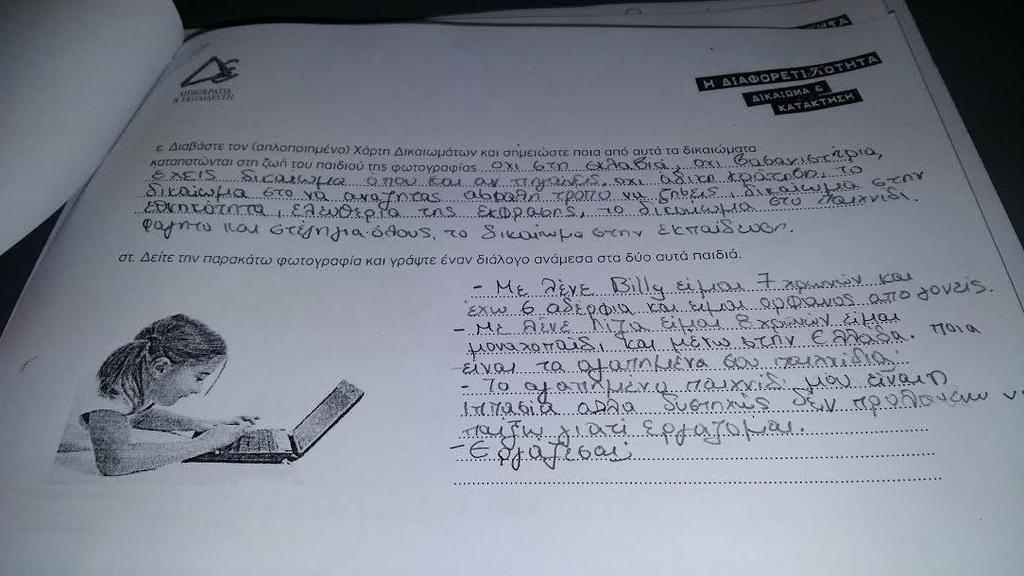 ΔΗΜΟΚΡΑΤΙΑ
& ΕΚΠΑΙΔΕΥΣΗ
Η ΔΙΑΦΟΡΕΤΙΚΟΤΗΤΑ
ΔΙΚΑΙΩΜΑ &
ΚΑΤΑΚΤΗΣΗ
ε. Διαβάστε τον (απλοποιημένο) Χάρτη Δικαιωμάτων και σημειώστε ποια από αυτά τα δικαιώματα
καταπατώνται στη ζωή του παιδιού της φωτογραφίας. όχι στη σκλαβιά, όχι βασανιστήρια,
έχεις δικαίωμα όπου και αν πηγαίνεις, όχι άδικη κράτηση, το
δικαίωμα στο να αναζητάς ασφαλή τρόπο να ζήσεις, δικαίωμα στην
εθνικότητα, ελευθερία της έκφρασης, το δικαίωμα στο παιχνίδι.
φαγητό και στέγη για όλους, το δικαίωμα στην εκπαίδευση.
στ. Δείτε την παρακάτω φωτογραφία και γράψτε έναν διάλογο ανάμεσα στα δύο αυτά παιδιά.
- Με λένε Billy είμαι 7 χρονών και
έχω 6 αδέρφια και είμαι ορφανός από γονείς.
- Με λένε Λίζα είμαι 8 χρονών είμαι
μοναχοπαίδι και μένω στην Ελλάδα. ποια
είναι τα αγαπημένα σου παιχνίδια;
- Το αγαπημένο παιχνίδι μου είναι η
ιππασία αλλά δυστηχώς δεν προλαβαίνω ν
παίξω γιατί εργάζομαι.
- Εργάζεσαι;